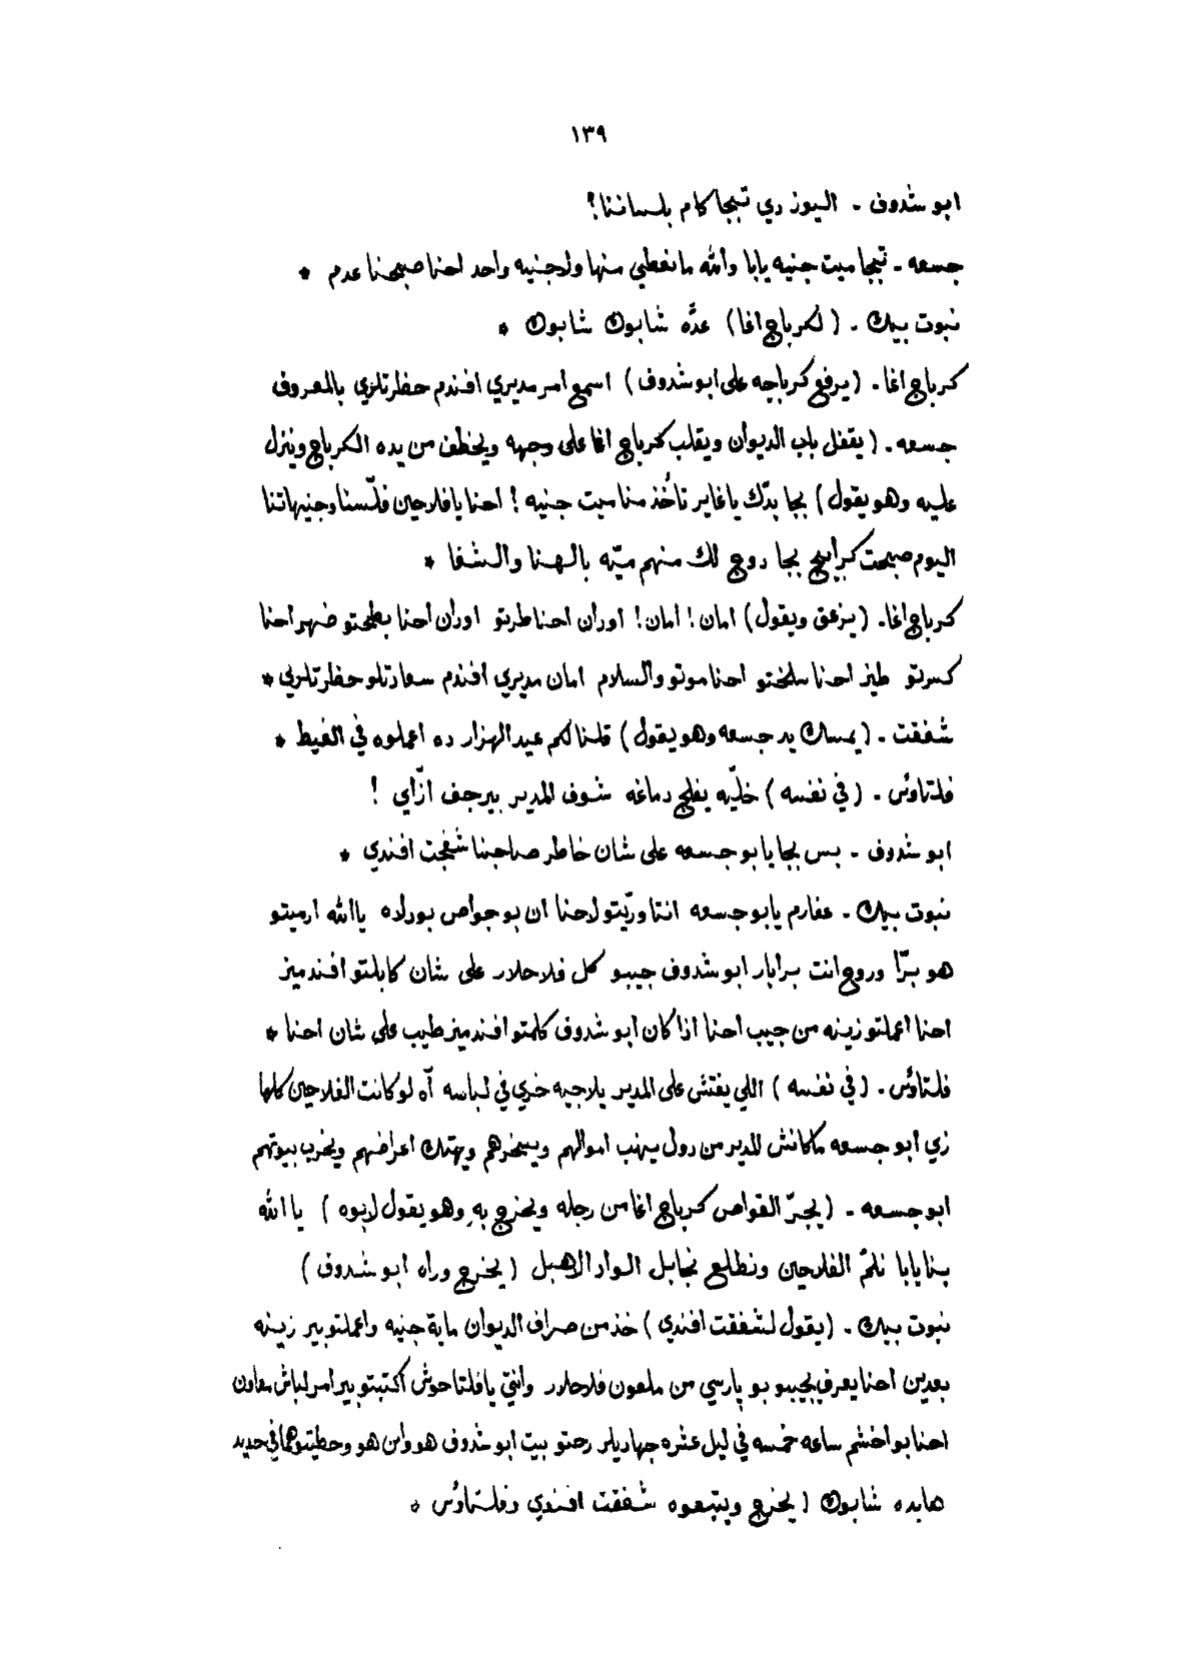 ١٣٩
ابو شدوف - اليوز دي تبجا كام بلساننا؟
جسعه - تبجا ميت جنيه يابا والله مانعطي منها ولاجنيه واحد احنا صبحنا عدم *
نبوت بيك - (لكرباج اغا) عدّه شابوك شابوك *
كرباج اغا - (يرفع كرباجه على ابو شدوف) اسمع امر مديري افندم حظرتلري بالمعروف
جسعه - (يقفل باب الديوان ويقلب كرباج اغا على وجهه ويخطف من يده الكرباج وينزل
عليه وهو يقول) بجا بدّك ياغاير تأخذ منا ميت جنيه! احنا يافلاحين فلّسنا وجنيهاتنا
اليوم صبحت كرابيج بجا دوج لك منهم ميّه بالهنا والشفا *
كرباج اغا - (يزعق ويقول) امان! امان! اوران احنا طربتو اوران احنا بطحتو ضهر احنا
كسرتو طيز احنا سلختو احنا موتو والسلام امان مديري افندم سعادتلو حظرتلري *
شفقت - (يمسك يد جسعه وهو يقول) قلنا لكم عيد الهزار ده اعملوه في الغيط *
فلتاوس - (في نفسه) خلّيه يفلج دماغه شوف المدير بيرجف ازّاي !
ابو شدوف - بس بجا يابو جسعه على شان خاطر صاحبنا شفجت افندي *
نبوت بيك - عفارم يابو جسعه انتا ورّيتو لاحنا ان بو جواص بورلده ياالله ارميتو
هو برّا وروح انت برابار ابو شدوف جيبو كل فلاحلار على شان كابلتو افندميز
احنا اعملتو زينه من جيب احنا اذا كان ابو شدوف كلمتو افندميز طيب على شان احنا *
فلتاؤس - (في نفسه) اللي يفتش على المدير يلاجيه خري في لباسه آه لو كانت الفلاحين كلها
زي ابو جسعه ماكانش المدير من دول ينهب اموالهم ويسخرهم ويهتك اعراضهم ويخرب بيوتهم
ابو جسعه - (يجرّ القواص كرباج اغا من رجله ويخرج به وهو يقول لابوه) يا الله
بنا يابا نلمّ الفلاحين ونطلع نجابل الوار الاهبل (يخرج وراه ابو شدوف)
نبوت بيك - (يقول لشفقت افندي) خذ من صراف الديوان ماية جنيه واعملتو بير زينه
بعدين احنا يعرف يجيبو بو پارسي من ملعون فلاحلار وانتي يا فلتاحوش اكتبتو بير امر لباش معاون
احنا بو اخشم ساعه خمسه في ليل عشره جهاديلر رحتو بيت ابو شدوف هو وابن هو وحطيتو هما في حديد
هايده شابوك (يخرج ويتبعوه شفقت افندي وفلتاؤس *